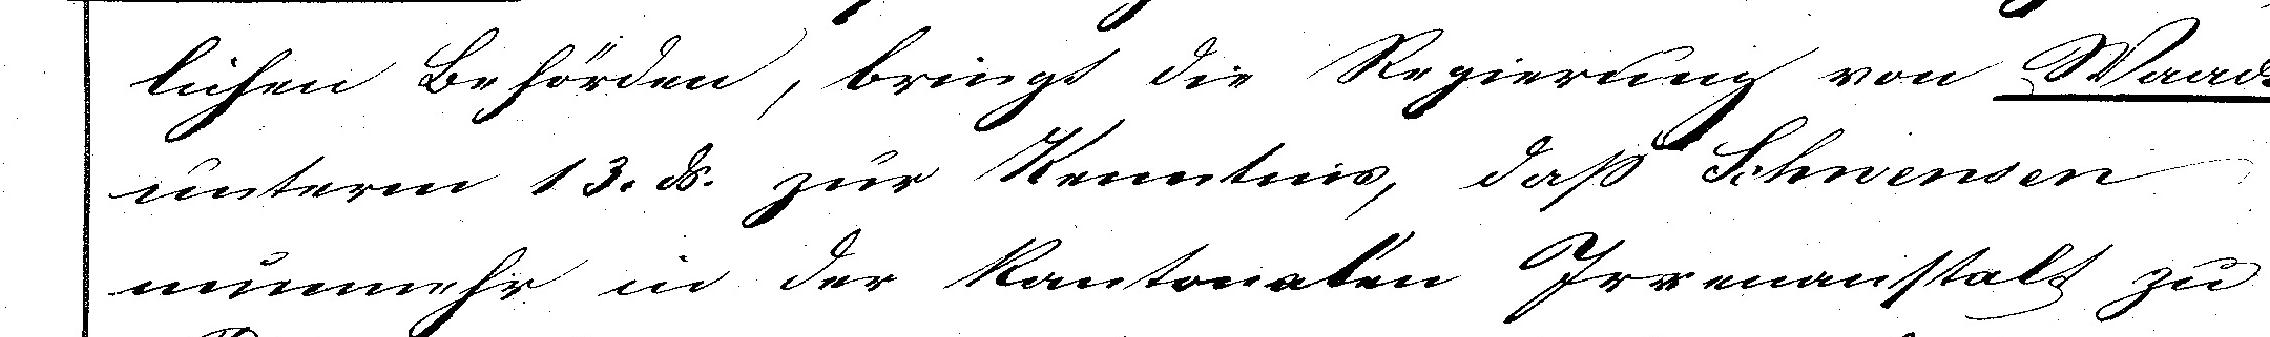 lichen Behörden, bringt die Regierung von Waadt
unterm 13. ds. zur Kenntnis, daß Schwensen
nunmehr in der kantonalen Irrenanstalt zu